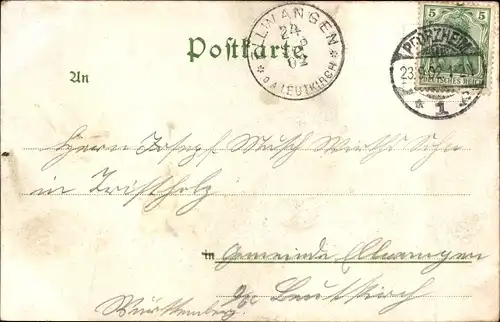 Postkarte
ELLWANGEN
24
02
O.A. LEUTKIRCH
5 5
DEUTSCHES REICH
PFORZHEIM
23.
* 1
An
Herrn Josef Musch Wirths Sohn
in Tristolz
in Gemeinde Ellwangen
O/A Leutkirch
Württemberg